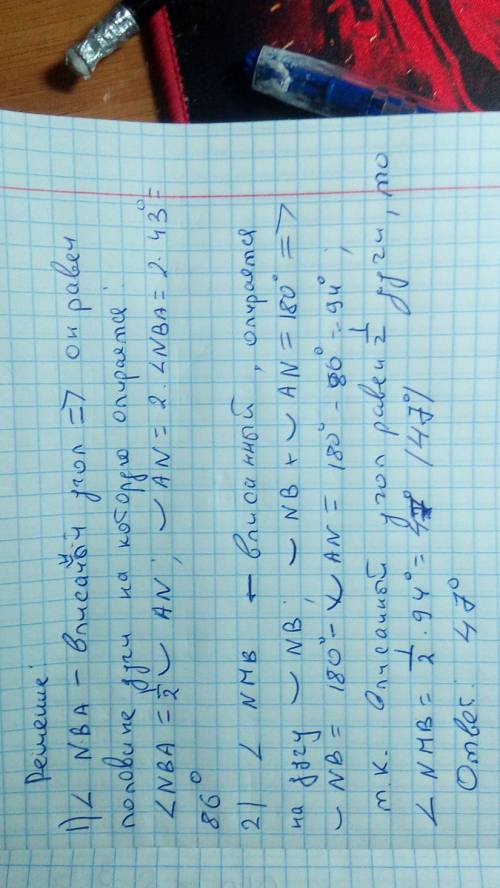 Решение:
1) ∠ NBA - вписаный угол => он равен
половине дуги на которую опирается:
∠NBA = 1/2 ◡ AN; ◡ AN = 2 · ∠NBA = 2 · 43° =
86°
2) ∠ NMB - вписанный, опирается
на дугу ◡ NB; ◡ NB + ◡ AN = 180° =>
◡ NB = 180° - ◡ AN = 180° - 86° = 94°;
т.к. Вписанный угол равен 1/2 дуги, то
∠ NMB = 1/2 · 94° = 47° /47°/
Ответ: 47°